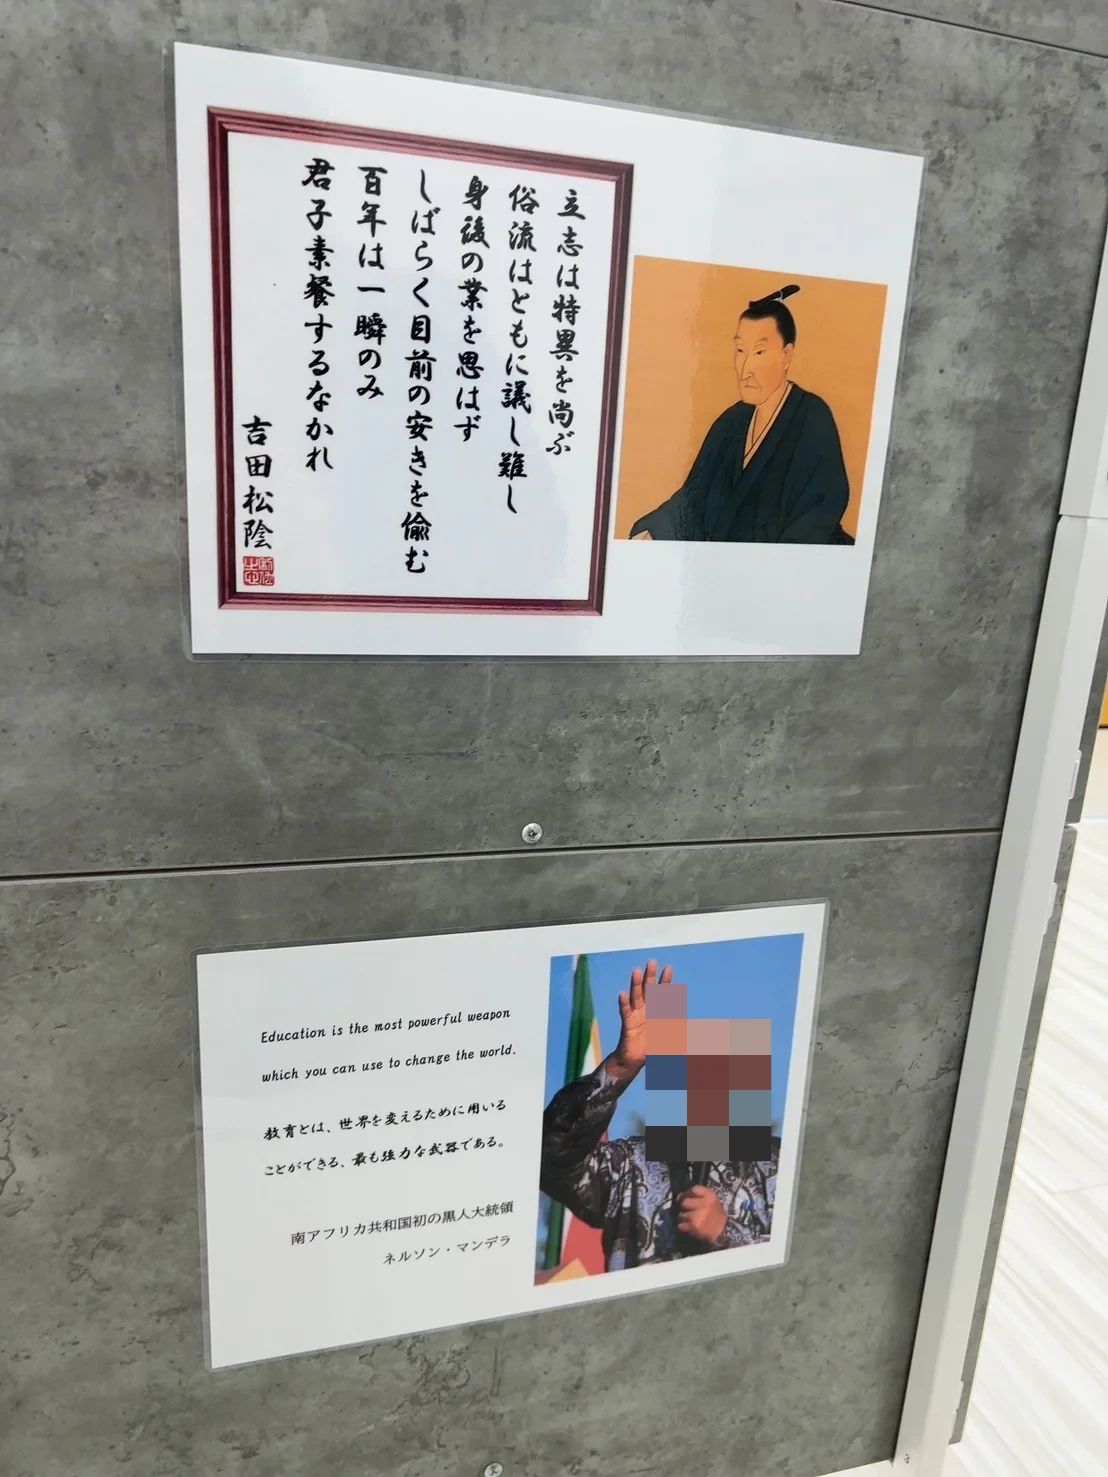 立志は特異を尚ぶ
俗流はともに議し難し
身後の業を思はず
しばらく目前の安きを偸む
百年は一瞬のみ
君子素餐するなかれ
吉田松陰
Education is the most powerful weapon
which you can use to change the world.
教育とは、世界を変えるために用いる
ことができる、最も強力な武器である。
南アフリカ共和国初の黒人大統領
ネルソン・マンデラ